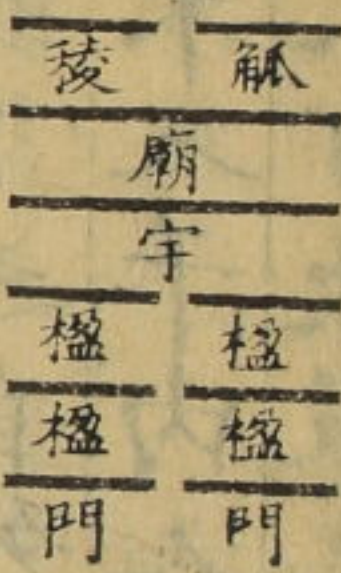 觚 稜
廟
宇
楹 楹
楹 楹
門 門